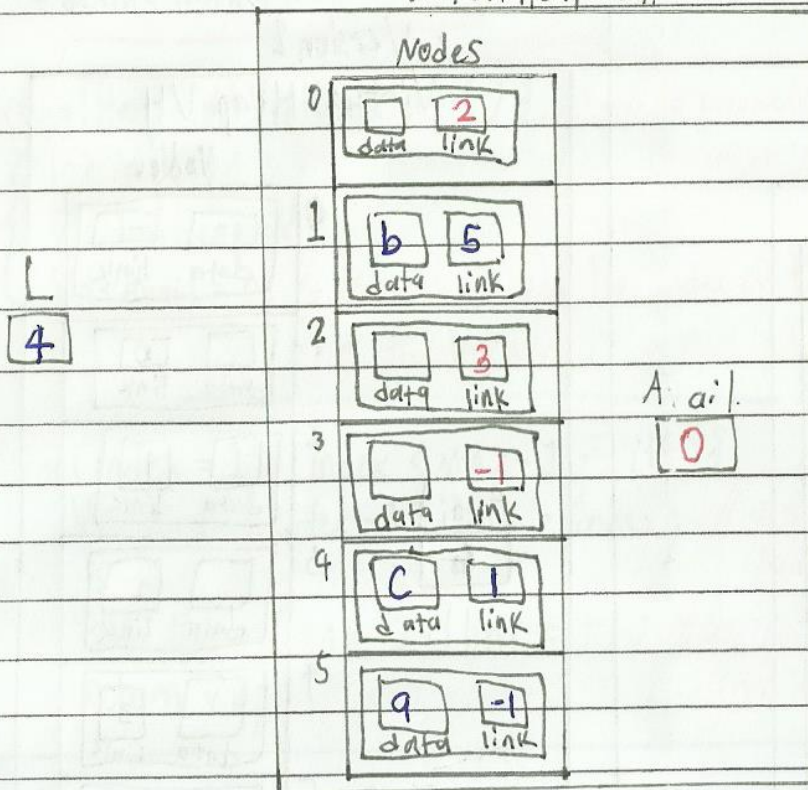 Nodes
0
2
data link
1
b 5
data link
L
4
2
3
data link
A. ail.
0
3
-1
data link
4
C 1
data link
5
a -1
data link